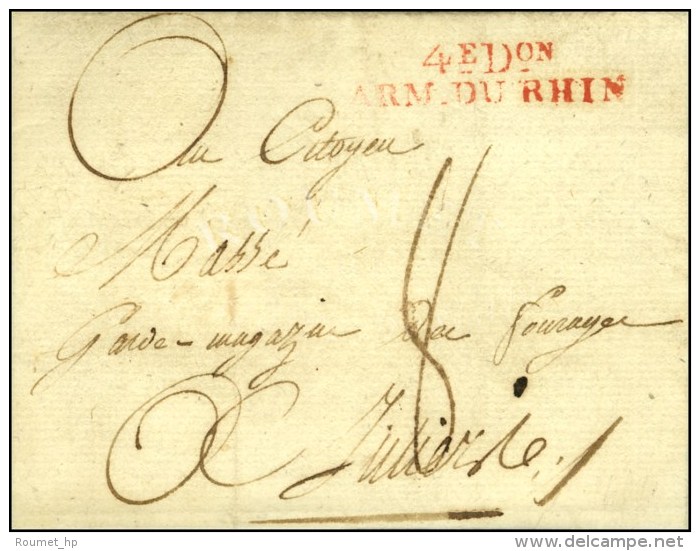 4E Don
ARM. DU RHIN
Au Citoyen
Massé
Garde-magazin des fourages
8
A Juliers
ROUMET
Roumet_hp
delcampe.net